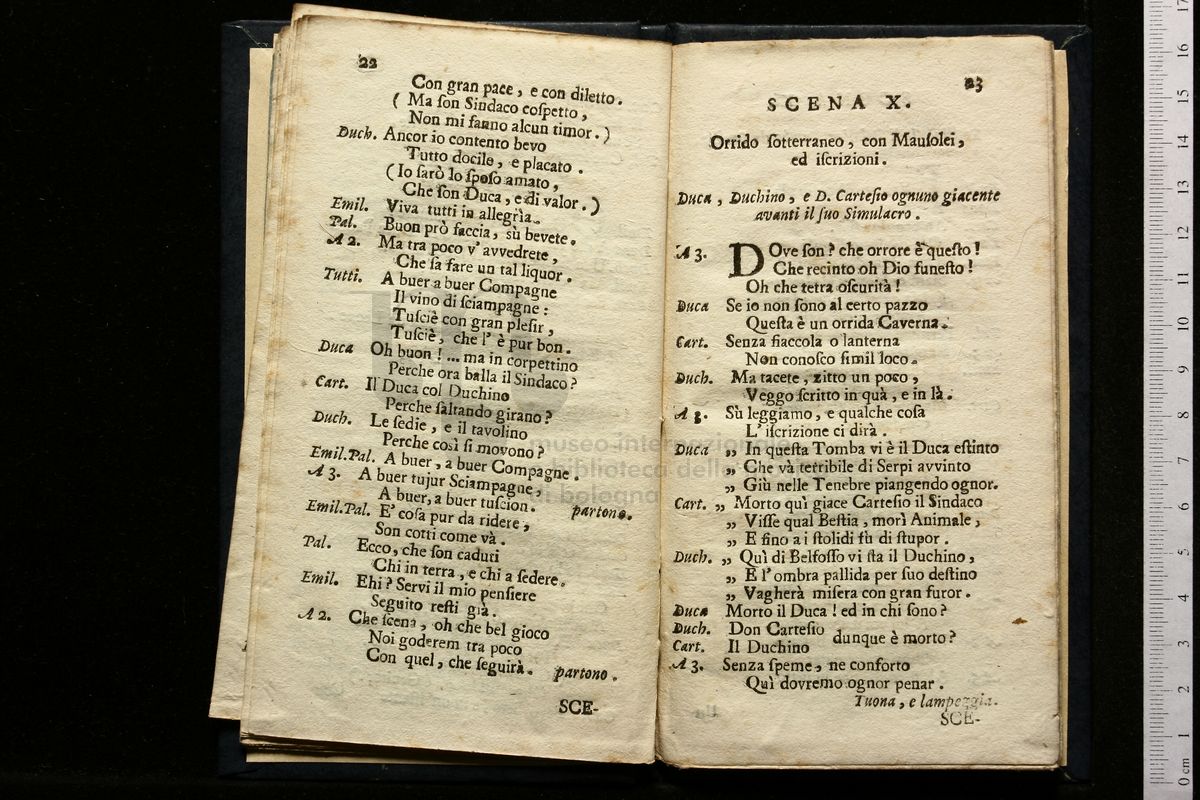 22
Con gran pace, e con diletto.
( Ma ſon Sindaco coſpetto,
Non mi fanno alcun timor. )
Duch. Ancor io contento bevo
Tutto docile, e placato.
( Io ſarò lo ſpoſo amato,
Che ſon Duca, e di valor. )
Emil. Viva tutti in allegrìa.
Pal. Buon prò faccia, sù bevete.
A 2. Ma tra poco v' avvedrete,
Che ſa fare un tal liquor.
Tutti. A buer a buer Compagne
Il vino di ſciampagne:
Tuſciè con gran pleſir,
Tuſciè, che l' è pur bon.
Duca Oh buon ! ... ma in corpettino
Perche ora balla il Sindaco?
Cart. Il Duca col Duchino
Perche ſaltando girano?
Duch. Le ſedie, e il tavolino
Perche così ſi movono?
Emil. Pal. A buer, a buer Compagne.
A 3. A buer tujur Sciampagne,
A buer, a buer tuſcion. partono.
Emil. Pal. E' coſa pur da ridere,
Son cotti come và.
Pal. Ecco, che ſon caduti
Chi in terra, e chi a ſedere.
Emil. Ehi? Servi il mio penſiere
Seguito reſti già.
A 2. Che ſcena, oh che bel gioco
Noi goderem tra poco
Con quel, che ſeguirà. partono.
SCE-
23
SCENA X.
Orrido ſotterraneo, con Mauſolei,
ed iſcrizioni.
Duca, Duchino, e D. Carteſio ognuno giacente
avanti il ſuo Simulacro.
A 3. DOve ſon? che orrore è queſto!
Che recinto oh Dio funeſto!
Oh che tetra oſcurità!
Duca Se io non ſono al certo pazzo
Queſta è un orrida Caverna.
Cart. Senza fiaccola o lanterna
Non conoſco ſimil loco.
Duch. Ma tacete, zitto un poco,
Veggo ſcritto in quà, e in là.
A 3. Sù leggiamo, e qualche coſa
L' iſcrizione ci dirà.
Duca „ In queſta Tomba vi è il Duca eſtinto
„ Che và terribile di Serpi avvinto
„ Giù nelle Tenebre piangendo ognor.
Cart. „ Morto quì giace Carteſio il Sindaco
„ Viſſe qual Beſtia, morì Animale,
„ E fino a i ſtolidi fù di ſtupor.
Duch. „ Quì di Belfoſſo vi ſta il Duchino,
„ E l' ombra pallida per ſuo deſtino
„ Vagherà miſera con gran furor.
Duca Morto il Duca! ed in chi ſono?
Duch. Don Carteſio
dunque è morto?
Cart. Il Duchino
A 3. Senza ſpeme, ne conforto
Quì dovremo ognor penar.
Tuona, e lampeggia.
SCE-
museo internazionale
biblioteca della
di bologna